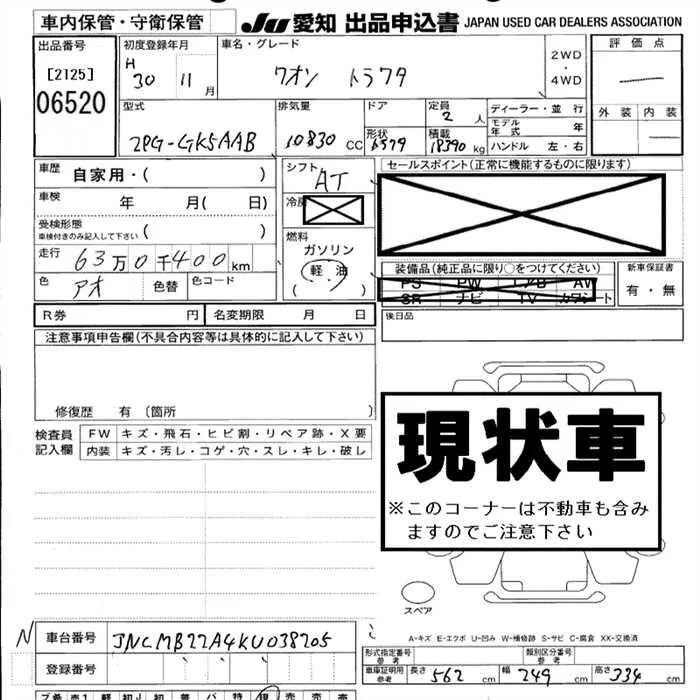 車内保管・守衛保管
JU 愛知 出品申込書 JAPAN USED CAR DEALERS ASSOCIATION
出品番号 [2125] 06520
初度登録年月 H 30 11月
車名・グレード クオン トラクタ
2WD・4WD
評価点
外装 内装
型式 2PG-GK5AAB
排気量 10830 CC
ドア
形状 トラクタ
定員 2 人
積載 18390 kg
ディーラー・並行
モデル年式 年
ハンドル 左・右
車歴 自家用・( )
車検 年 月( 日)
受検形態 車検付きのみ記入して下さい ( )
走行 63万0千400km
色 アオ 色替 色コード
シフト AT
冷房
燃料 ガソリン 軽油 ( )
セールスポイント(正常に機能するものに限ります)
装備品(純正品に限り○をつけてください)
PS PW エアB AW
SR ナビ TV カワシート
新車保証書 有・無
R券 円 名変期限 月 日
後日品
注意事項申告欄(不具合内容等は具体的に記入して下さい)
修復歴 有 〔箇所 〕
検査員記入欄
FW キズ・飛石・ヒビ割・リペア跡・X要
内装 キズ・汚レ・コゲ・穴・スレ・キレ・破レ
現状車
※このコーナーは不動車も含み
ますのでご注意下さい
スペア
A-キズ E-エクボ U-凹み W-補修跡 S-サビ C-腐食 XX-交換済
N 車台番号 JNCMB22A4KU038205
登録番号
形式指定番号 参考
類別区分番号 参考
車庫証明用 参考 長さ 562 cm 幅 249 cm 高さ 334 cm